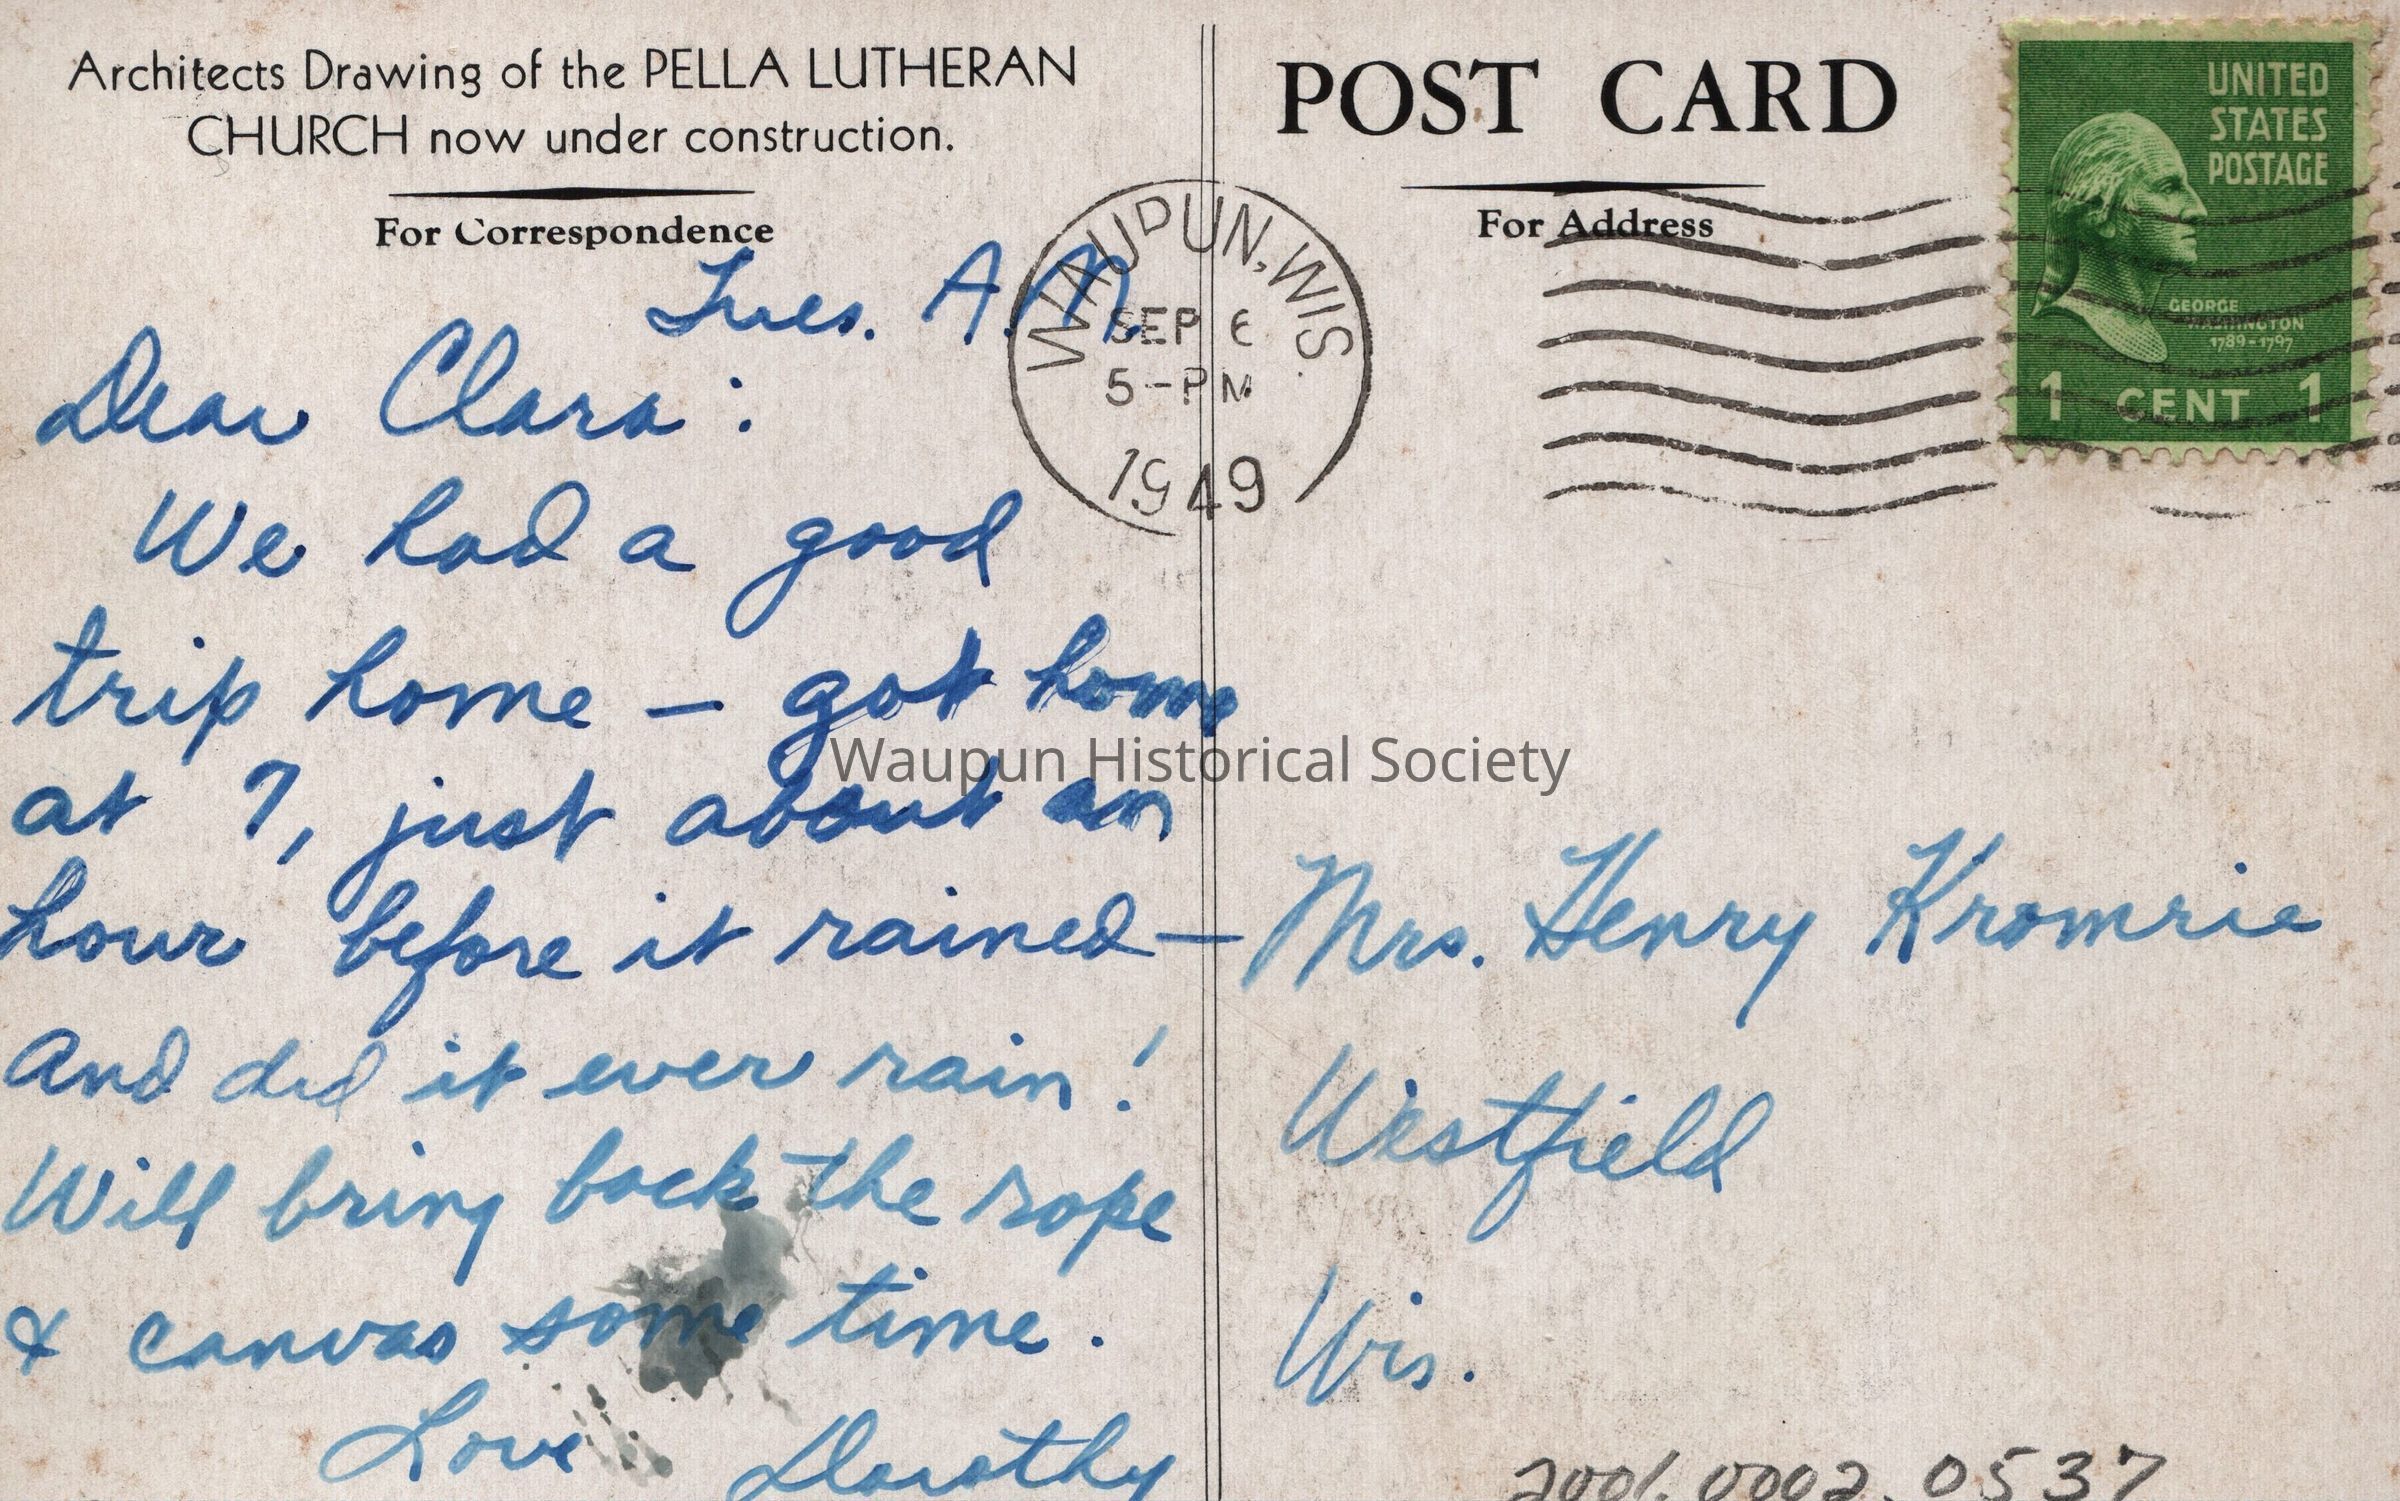 Architects Drawing of the PELLA LUTHERAN
CHURCH now under construction.
For Correspondence
Tues. A.M.
Dear Clara:
We had a good
trip home – got home
at 7, just about an
hour before it rained –
And did it ever rain!
Will bring back the rope
& canvas some time.
Love Dorothy
WAUPUN, WIS.
SEP 6
5-PM
1949
POST CARD
For Address
UNITED
STATES
POSTAGE
GEORGE
WASHINGTON
1789-1797
1 CENT 1
Waupun Historical Society
Mrs. Henry Kromrie
Westfield
Wis.
2001.0002.0537